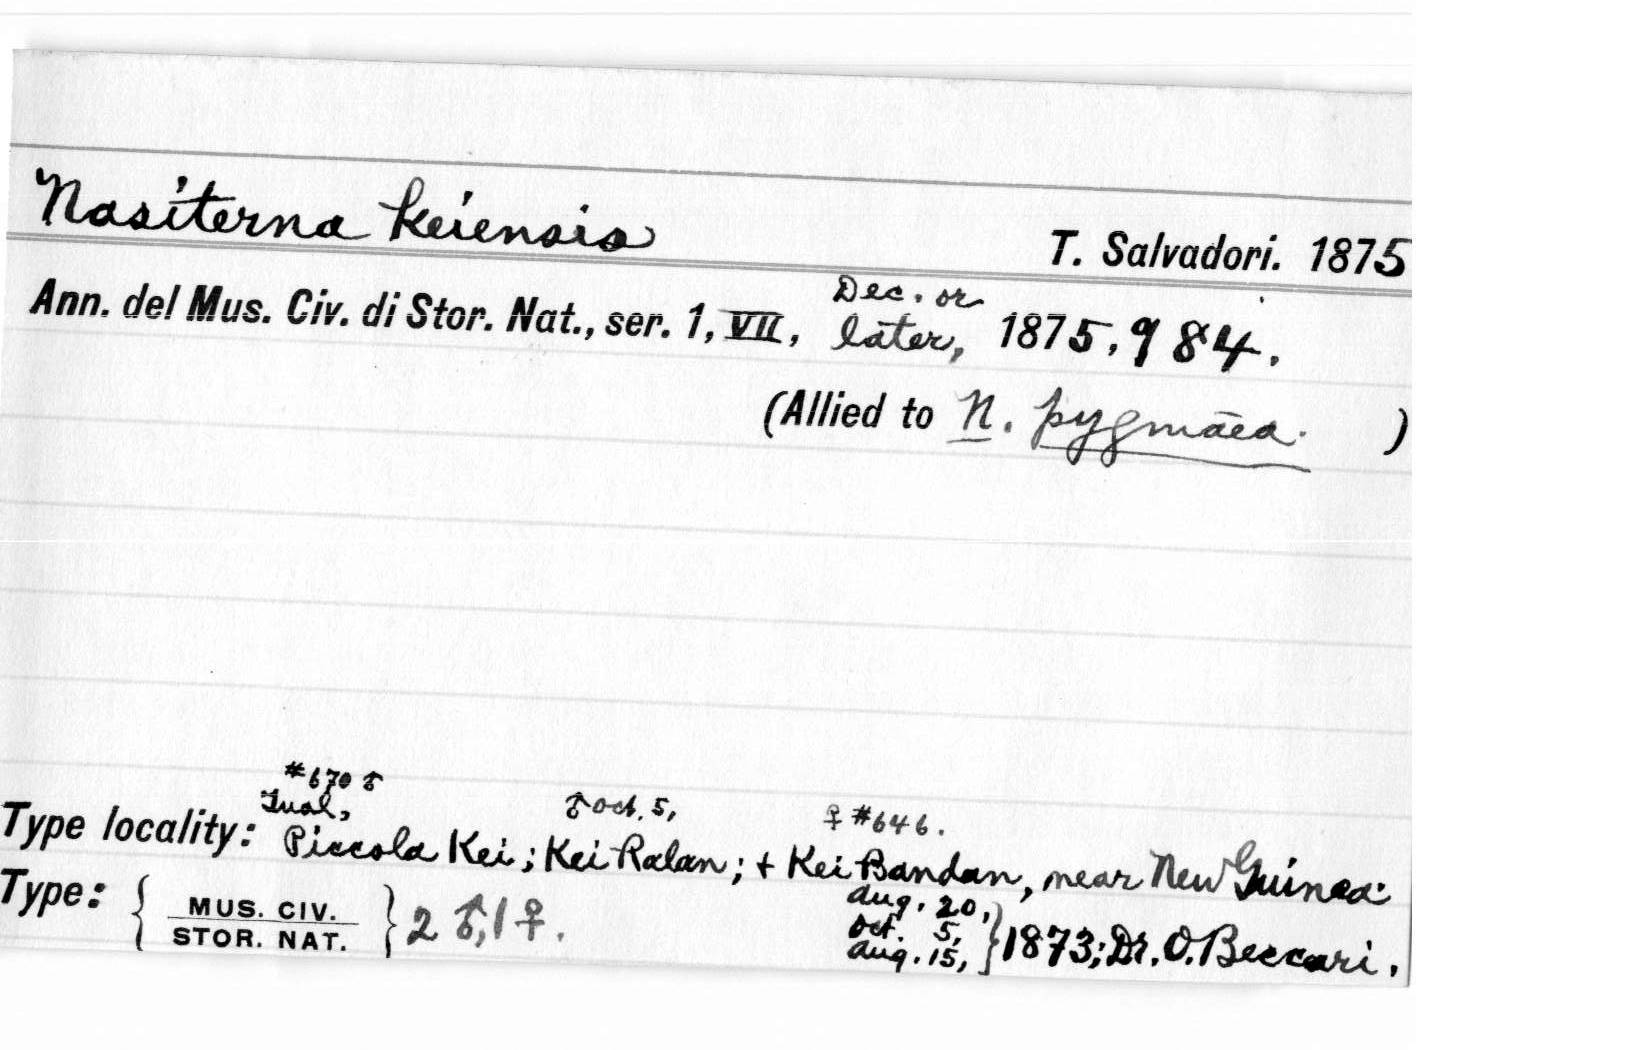 Nasiterna keiensis T. Salvadori. 1875
Ann. del Mus. Civ. di Stor. Nat., ser. 1, VII, Dec. or later, 1875, 984.
(Allied to N. pygmaea. )
#670 ♂
Tual, ♂ Oct. 5, ♀ #646.
Type locality: Piccola Kei; Kei Ralan; + Kei Bandan, near New Guinea.
Type: { MUS. CIV. STOR. NAT. } 2 ♂, 1 ♀.
Aug. 20,
Oct. 5,
Aug. 15, } 1873; Dr. O. Beccari.